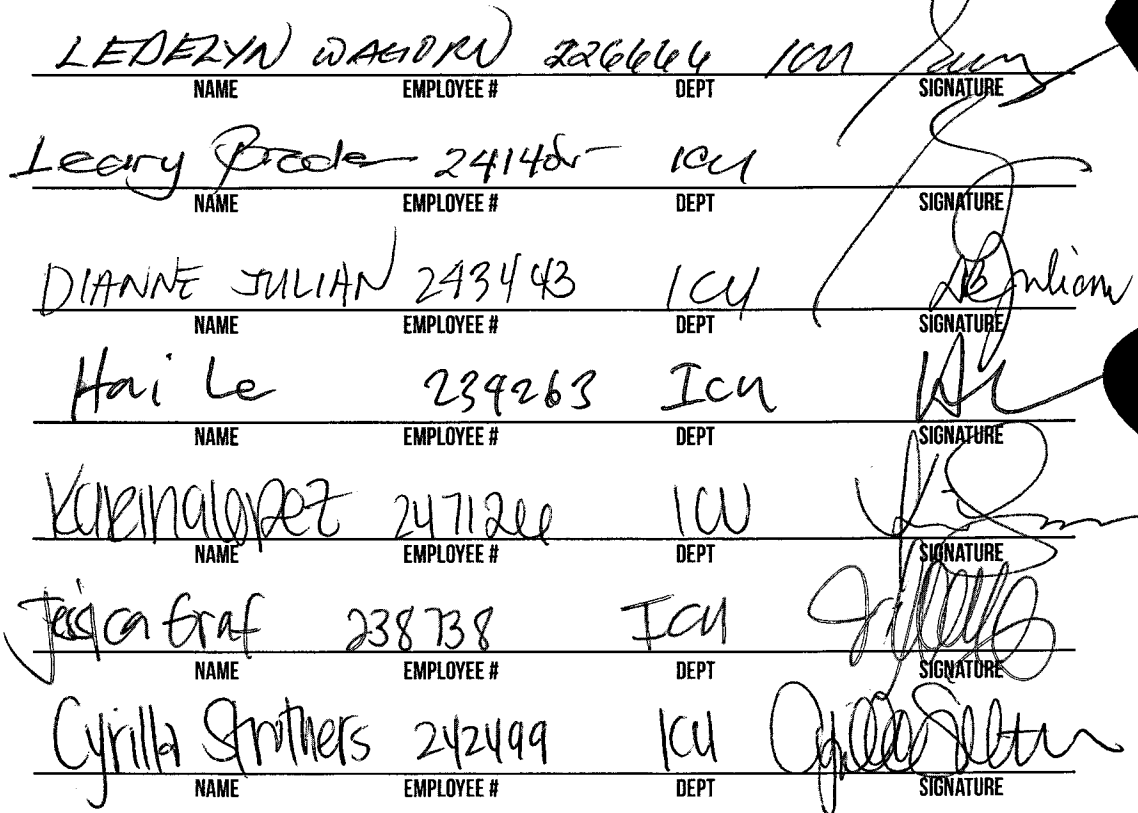 LEDELYN WAGORN 226664 ICU
NAME EMPLOYEE # DEPT SIGNATURE
Leary ICU
NAME EMPLOYEE # DEPT SIGNATURE
DIANNE JULIAN 243443 ICU DB Julian
NAME EMPLOYEE # DEPT SIGNATURE
Hai Le 234263 ICU
NAME EMPLOYEE # DEPT SIGNATURE
Karina Lopez ICU
NAME EMPLOYEE # DEPT SIGNATURE
Jessica Graf 238738 ICU
NAME EMPLOYEE # DEPT SIGNATURE
Cyrilla Strothers 242499 ICU
NAME EMPLOYEE # DEPT SIGNATURE